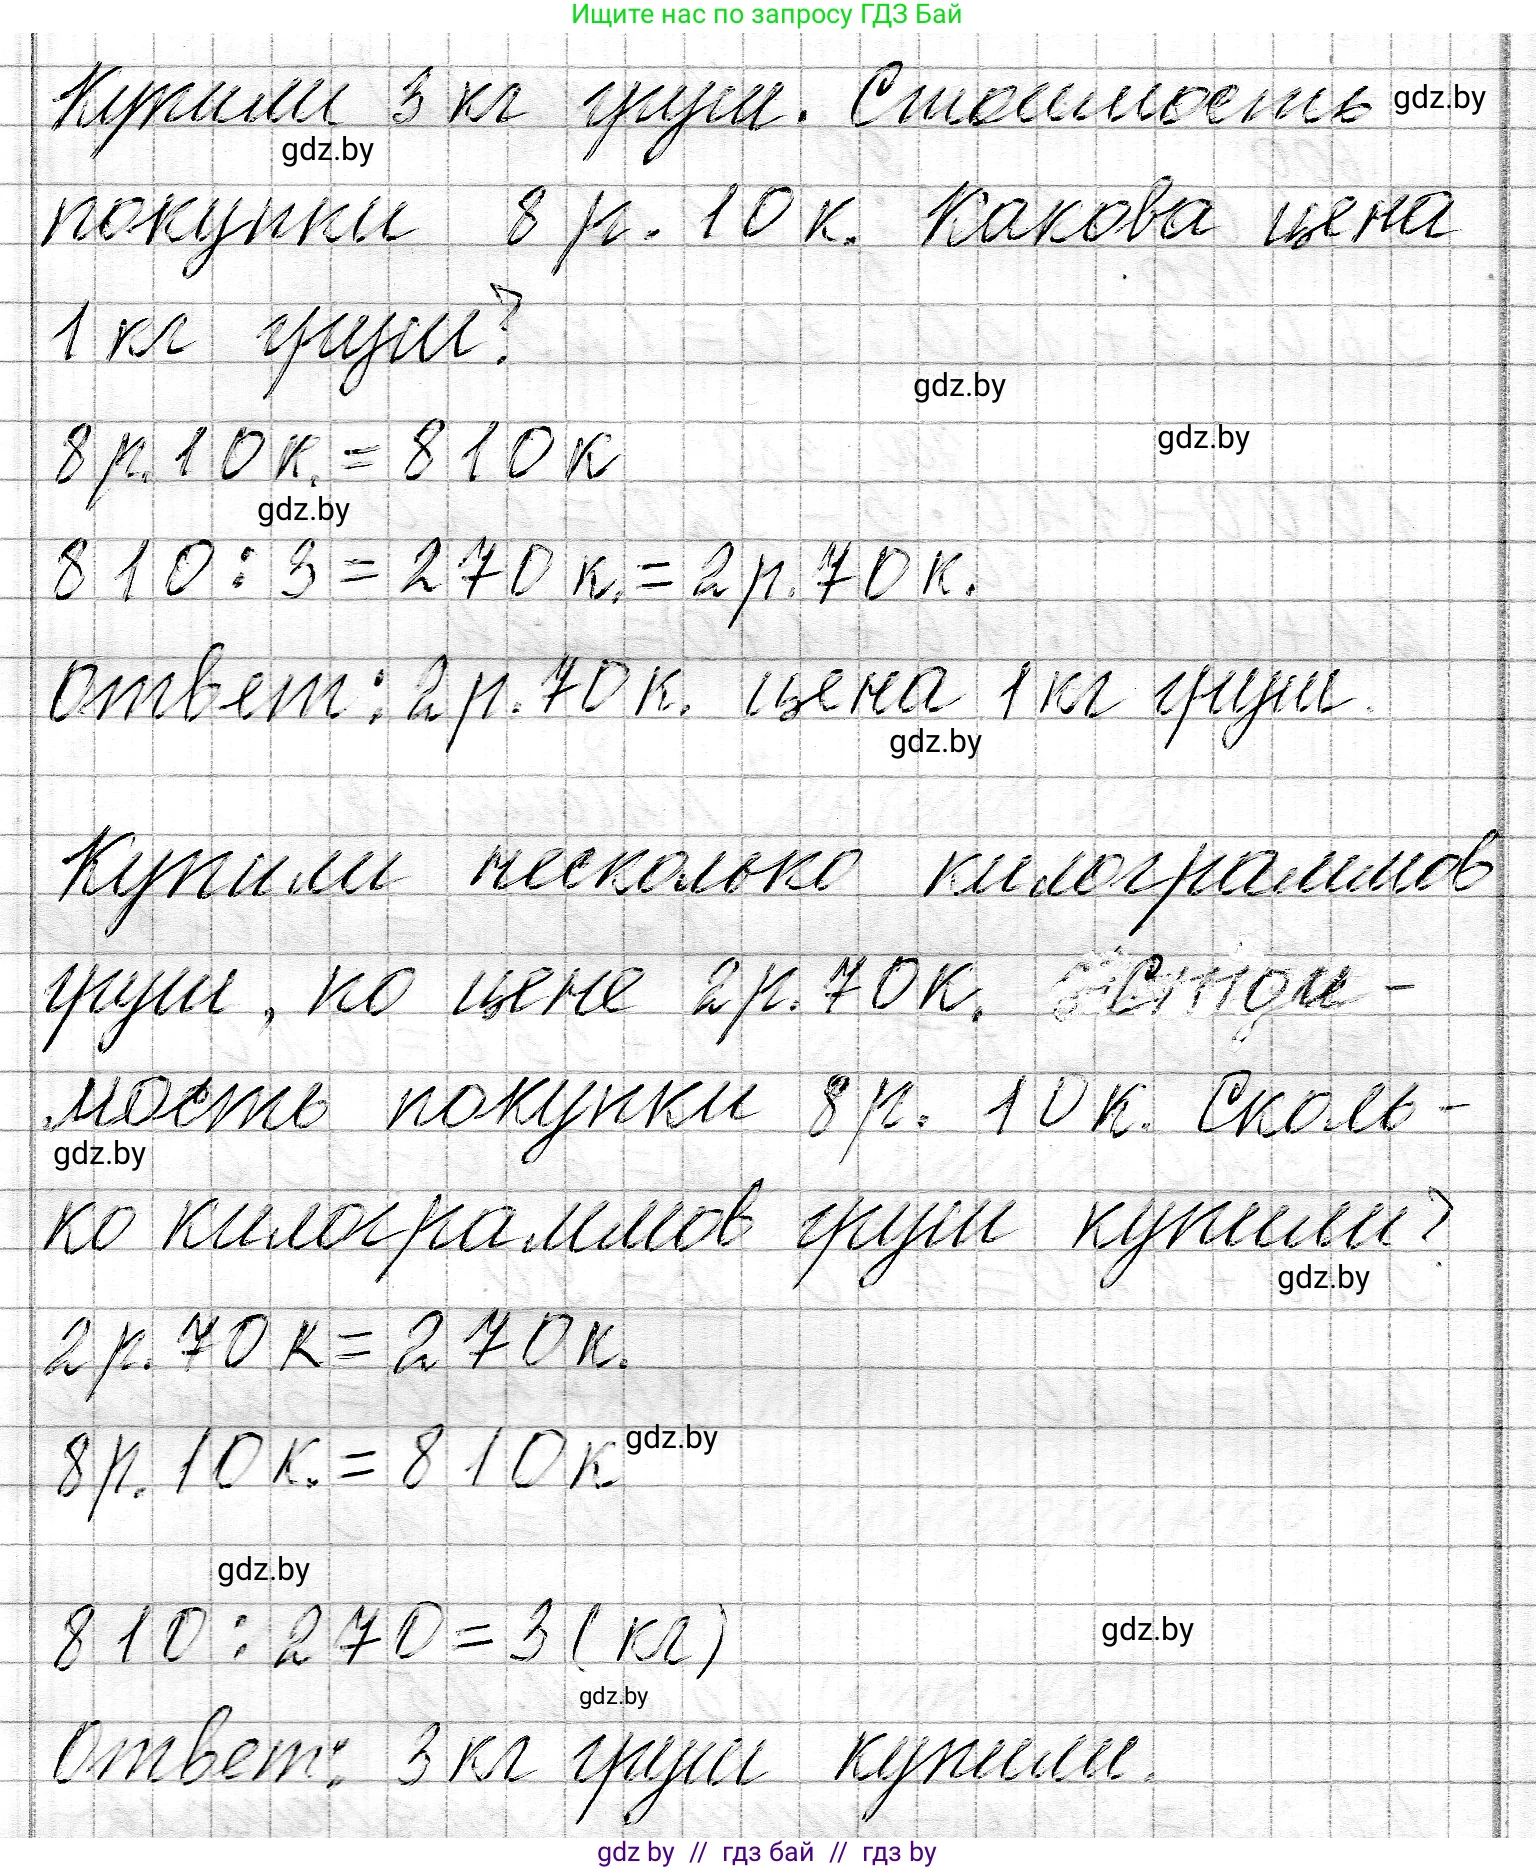 Ищите нас по запросу ГДЗ Бай
Купили 3 кг груш. Стоимость gdz.by
gdz.by
покупки 8 р. 10 к. Какова цена
1 кг груш?
gdz.by
gdz.by
8 р. 10 к. = 810 к
gdz.by
810 : 3 = 270 к. = 2 р. 70 к.
Ответ: 2 р. 70 к. цена 1 кг груш.
gdz.by
Купили несколько килограммов
груш, по цене 2 р. 70 к. Стои-
мость покупки 8 р. 10 к. Сколь-
gdz.by
ко килограммов груш купили?
gdz.by
2 р. 70 к = 270 к.
8 р. 10 к. = 810 к gdz.by
gdz.by
810 : 270 = 3 (кг)
gdz.by
gdz.by
Ответ: 3 кг груш купили.
gdz by // гдз бай // гдз by